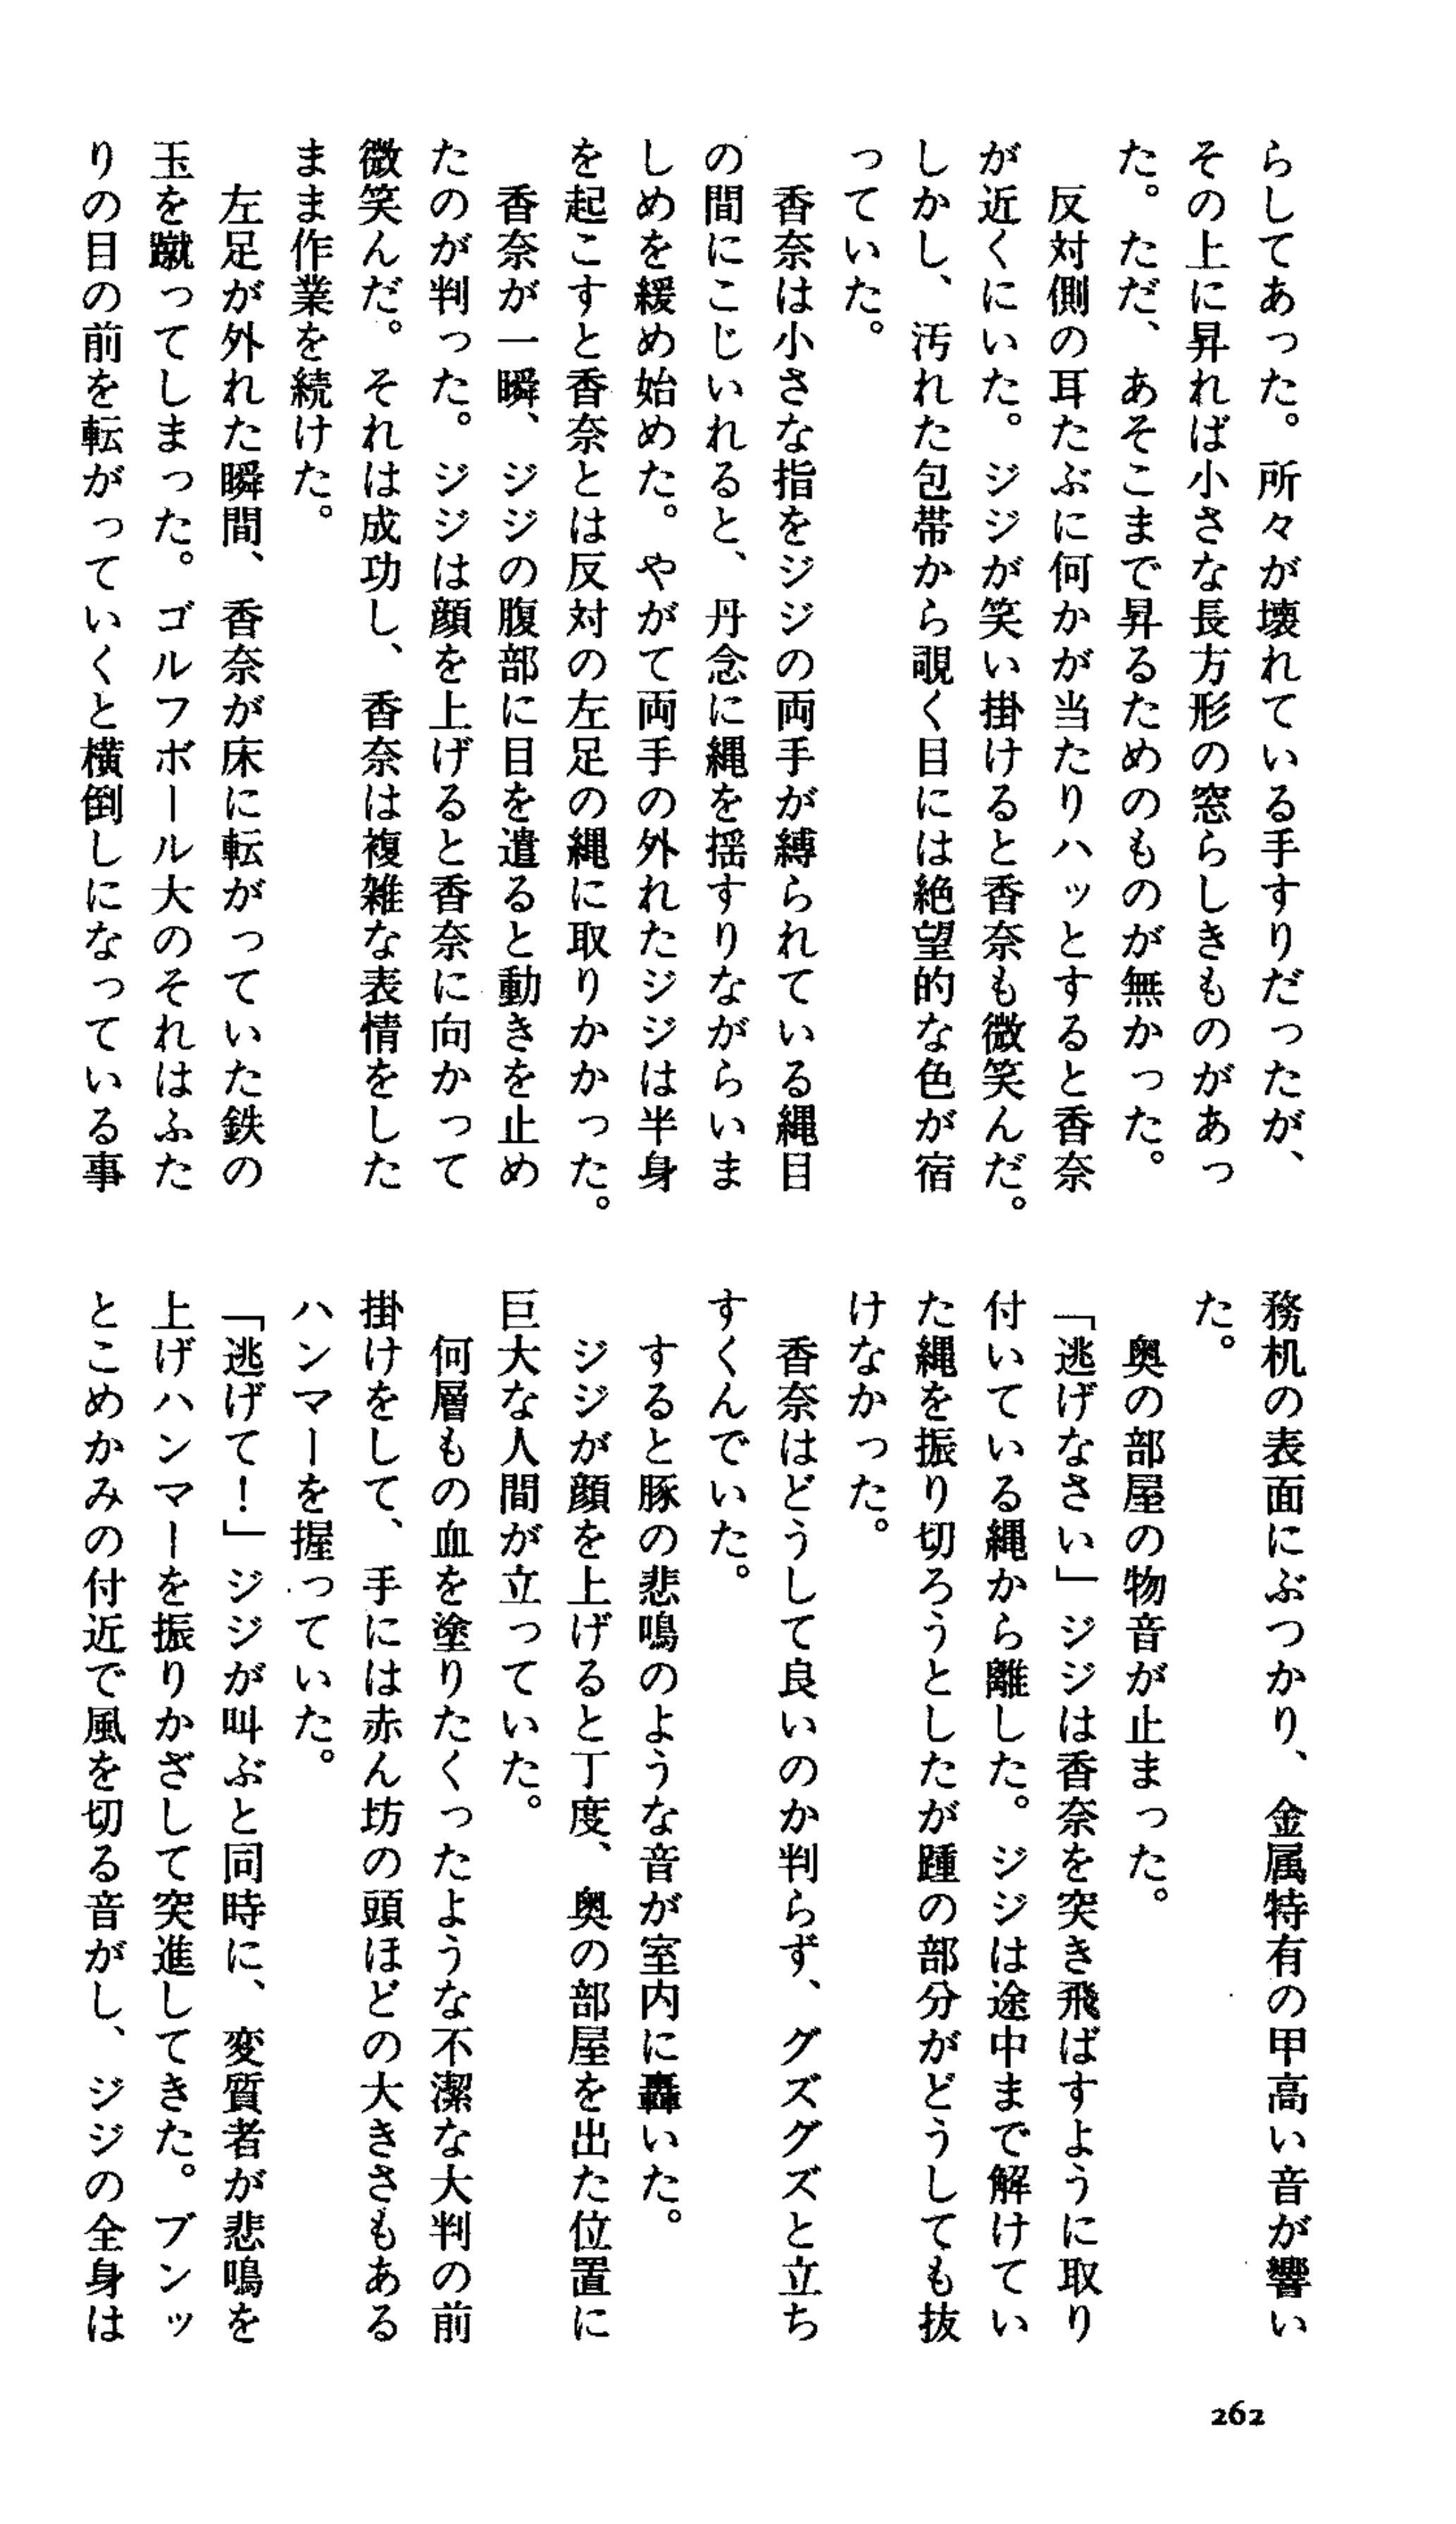 らしてあった。所々が壊れている手すりだったが、
その上に昇れば小さな長方形の窓らしきものがあっ
た。ただ、あそこまで昇るためのものが無かった。
反対側の耳たぶに何かが当たりハッとすると香奈
が近くにいた。ジジが笑い掛けると香奈も微笑んだ。
しかし、汚れた包帯から覗く目には絶望的な色が宿
っていた。
香奈は小さな指をジジの両手が縛られている縄目
の間にこじいれると、丹念に縄を揺すりながらいま
しめを緩め始めた。やがて両手の外れたジジは半身
を起こすと香奈とは反対の左足の縄に取りかかった。
香奈が一瞬、ジジの腹部に目を遣ると動きを止め
たのが判った。ジジは顔を上げると香奈に向かって
微笑んだ。それは成功し、香奈は複雑な表情をした
まま作業を続けた。
左足が外れた瞬間、香奈が床に転がっていた鉄の
玉を蹴ってしまった。ゴルフボール大のそれはふた
りの目の前を転がっていくと横倒しになっている事
務机の表面にぶつかり、金属特有の甲高い音が響い
た。
奥の部屋の物音が止まった。
「逃げなさい」ジジは香奈を突き飛ばすように取り
付いている縄から離した。ジジは途中まで解けてい
た縄を振り切ろうとしたが踵の部分がどうしても抜
けなかった。
香奈はどうして良いのか判らず、グズグズと立ち
すくんでいた。
すると豚の悲鳴のような音が室内に轟いた。
ジジが顔を上げると丁度、奥の部屋を出た位置に
巨大な人間が立っていた。
何層もの血を塗りたくったような不潔な大判の前
掛けをして、手には赤ん坊の頭ほどの大きさもある
ハンマーを握っていた。
「逃げて!」ジジが叫ぶと同時に、変質者が悲鳴を
上げハンマーを振りかざして突進してきた。ブンッ
とこめかみの付近で風を切る音がし、ジジの全身は
262